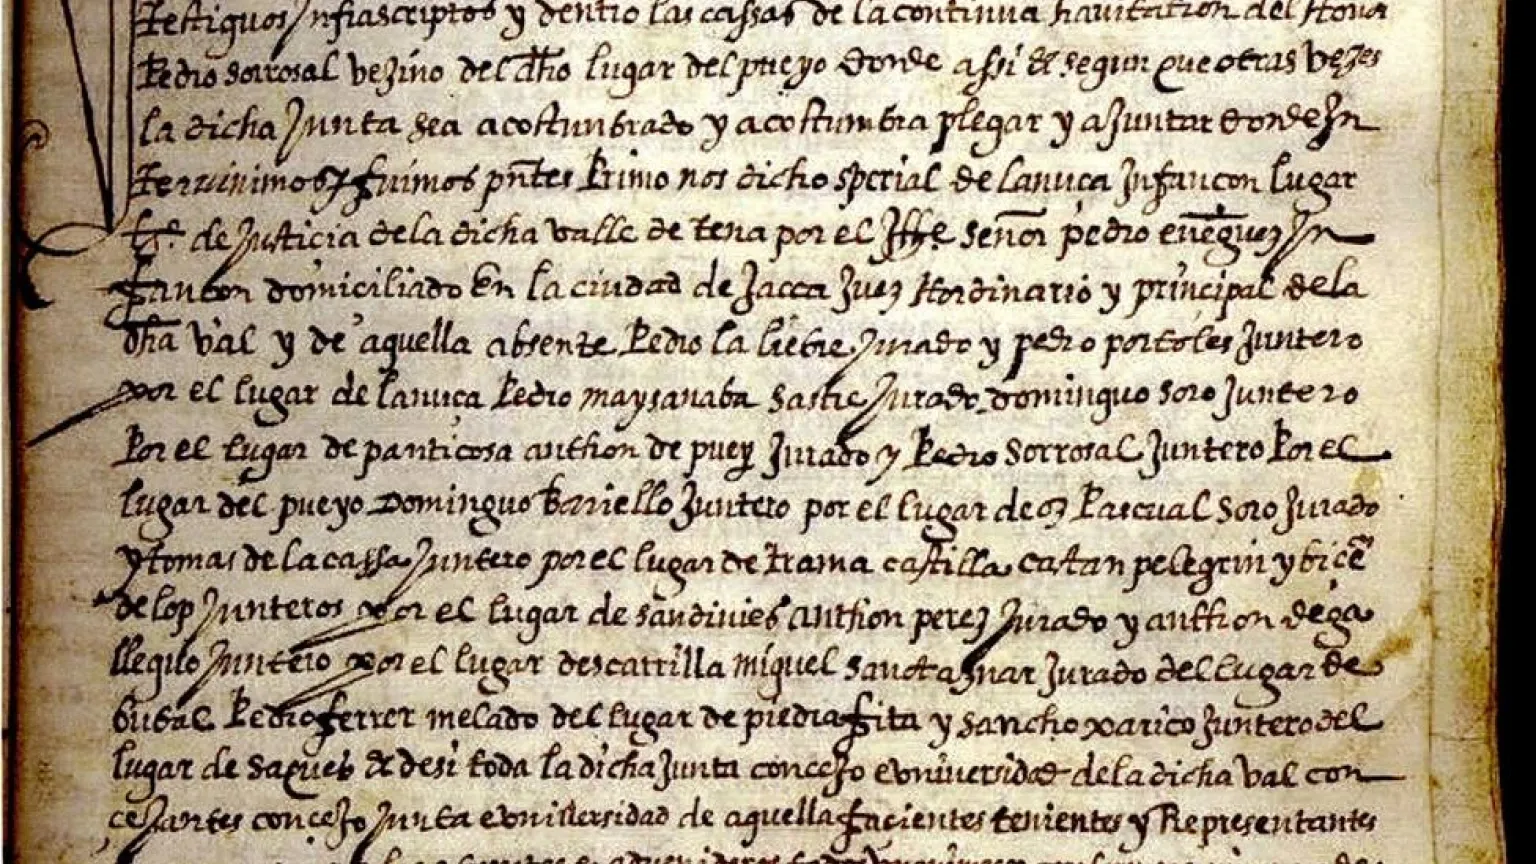 testiguos Infrascriptos y dentro las cassas de la continua havitation del Hon
Pedro sorrosal vezino del dho lugar del pueyo donde assi et segun que otras vezes
la dicha Junta sea acostunbrado y acostumbra plegar y aJuntar donde In
tervinimos y fuimos pntes Primo nos dicho special de lanuça Infancon lugar
de Justicia de la dicha valle de tena por el señor pedro In
fancon domiciliado En la ciudad de Jacca Juez Hordinario y principal de la
dha val y de aquella absente Pedro la liebre Jurado y pedro portoles Juntero
por el lugar de lanuça Pedro maysanaba sastre Jurado dominguo soro Juntero
Por el lugar de panticosa anthon de puey Jurado y Pedro sorrosal Juntero Por el
lugar del pueyo Dominguo Bariello Juntero por el lugar de oz Pascual soro Jurado
y tomas de la cassa Juntero por el lugar de trama castilla castan pelegrin y bicē
de lop Junteros por el lugar de sandinies anthon perez Jurado y anthon de ga
lleguo Juntero por el lugar descarrilla miguel sanctaznar Jurado del lugar de
bubal Pedro ferrer melado del lugar de piedrafita y sancho xarico Juntero del
lugar de saques et desi toda la dicha Junta concejo e vniversidad de la dicha val con
cejantes concejo Junta e vniversidad de aquella facientes tenientes y Representantes